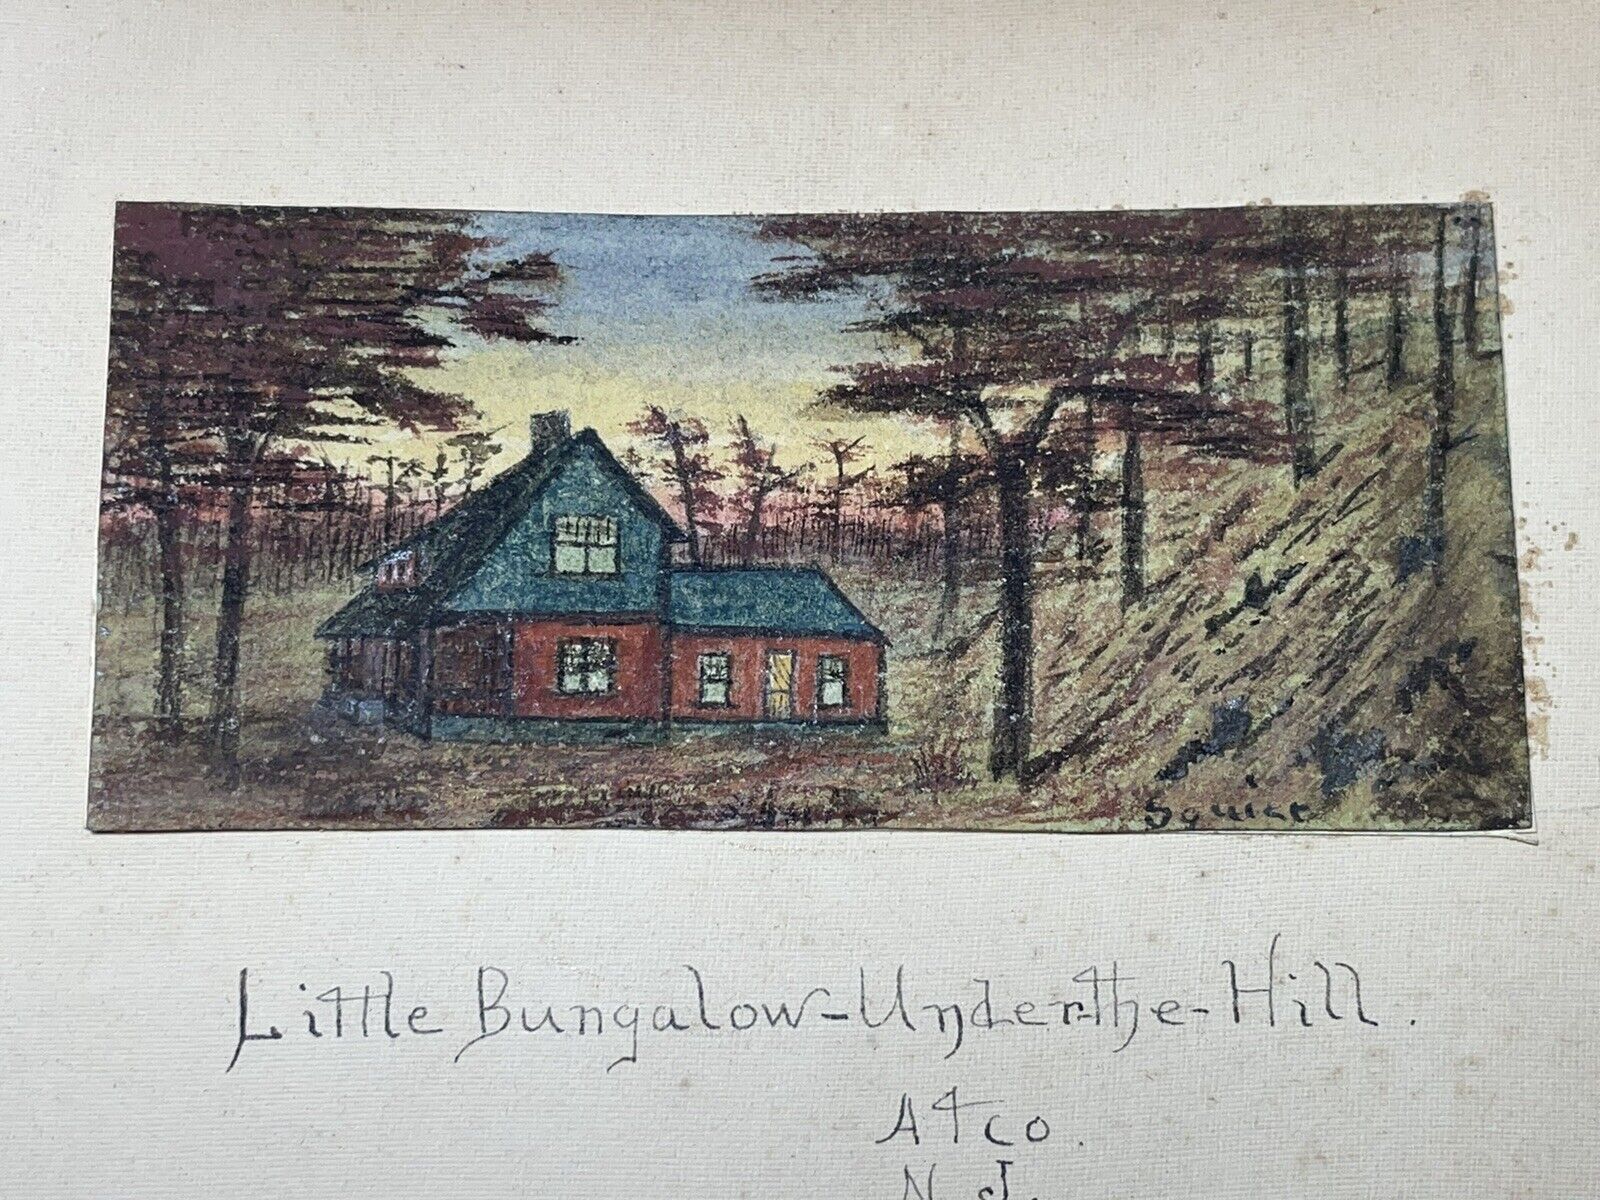 Squier
Little Bungalow-Under-the-Hill.
Atco.
N.J.